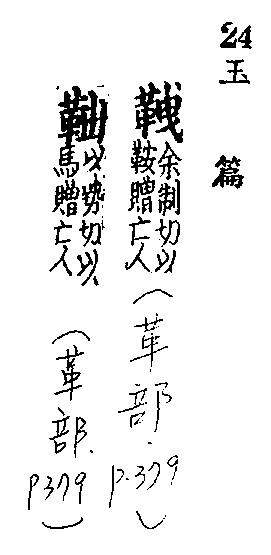 24玉篇
靾余制切以鞍贈亡人(革部.p.379)
以势切以馬贈亡人(革部.p379)